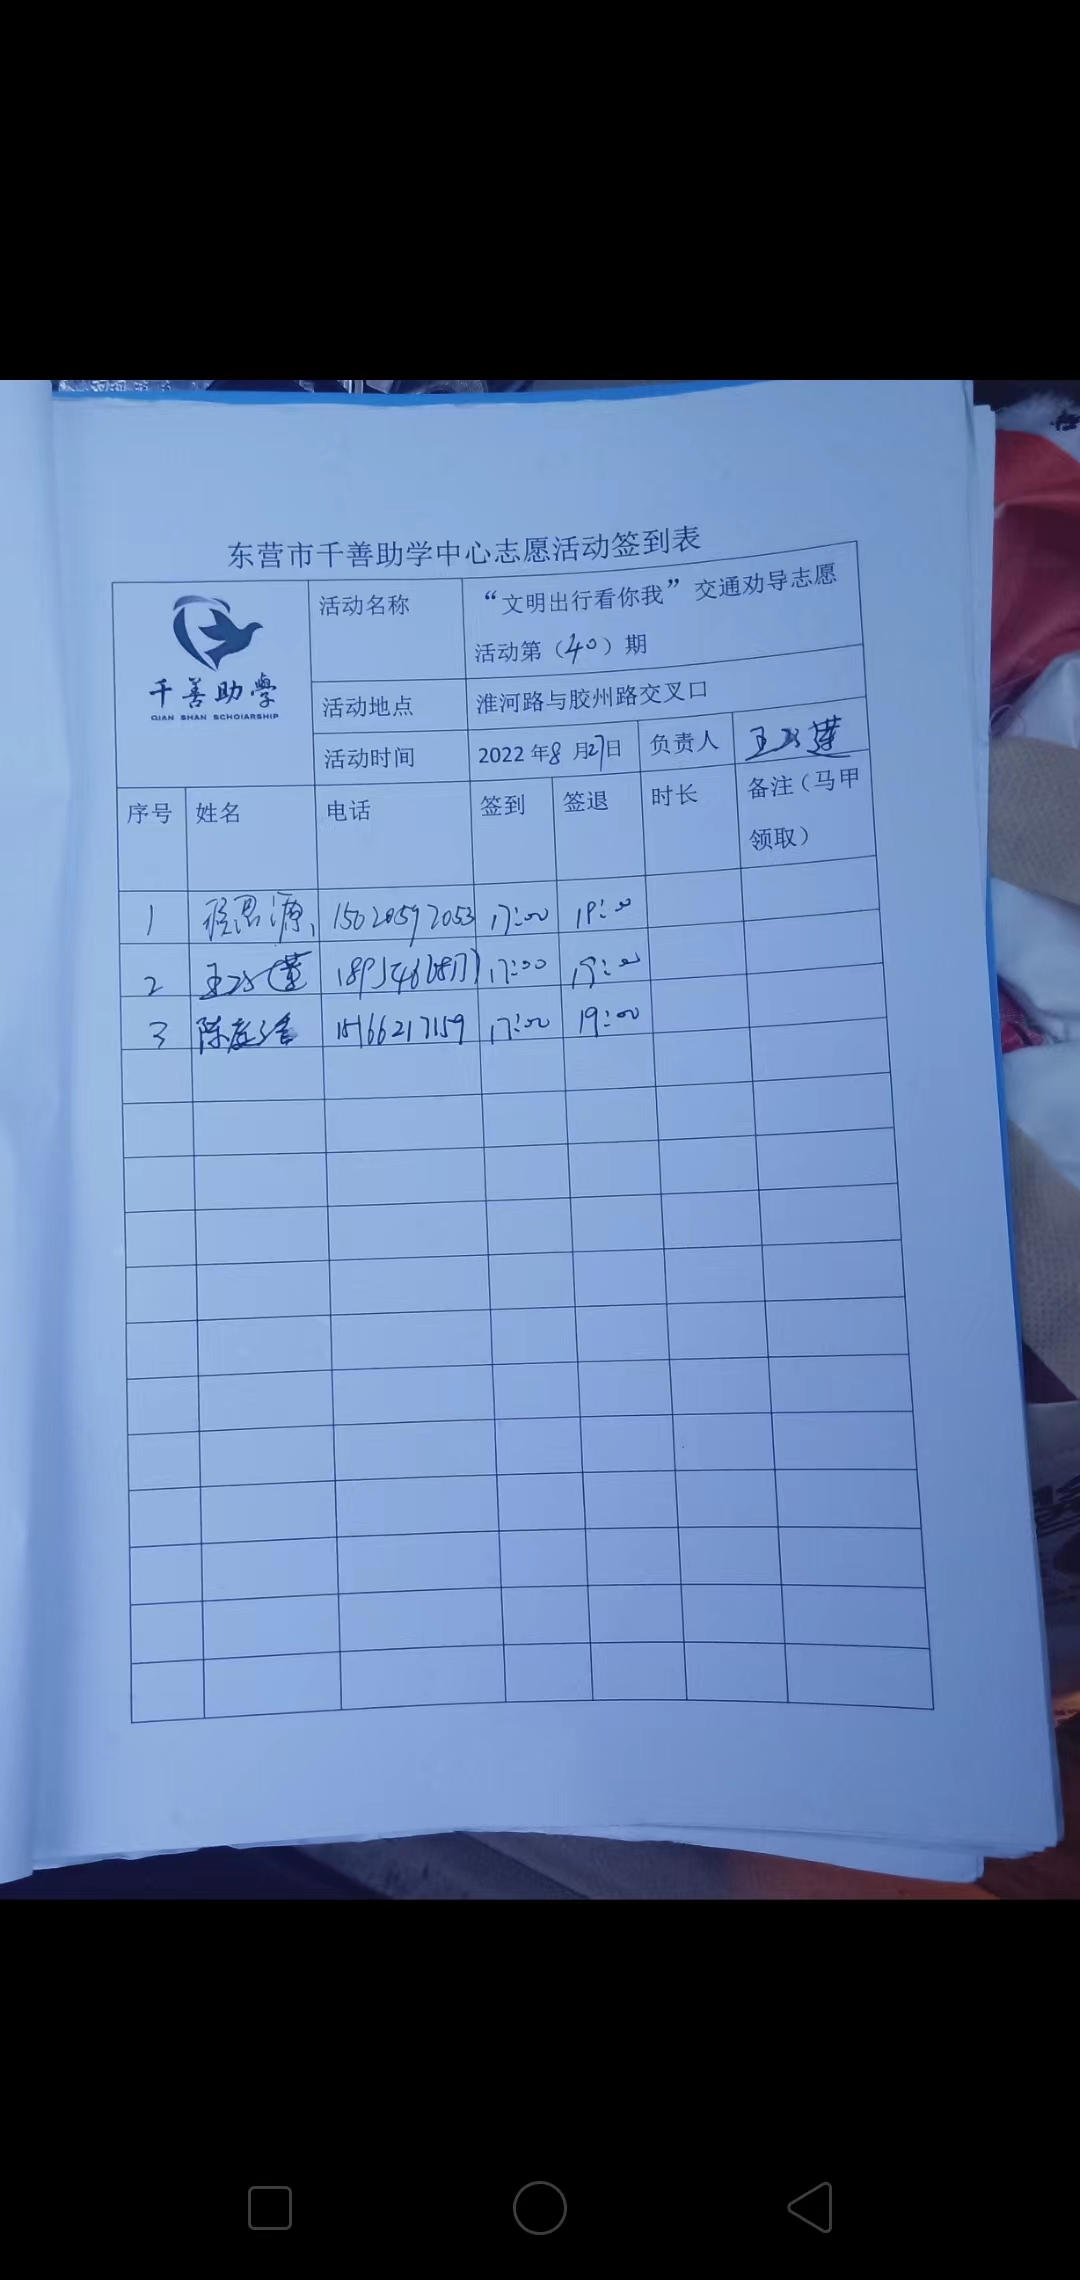 东营市千善助学中心志愿活动签到表
千善助學
QIAN SHAN SCHOlARSHIP
活动名称 “文明出行看你我”交通劝导志愿
活动第（40）期
活动地点 淮河路与胶州路交叉口
活动时间 2022年8月27日 负责人
序号 姓名 电话 签到 签退 时长 备注（马甲
领取）
1 15020597053 17:00 19:00
2 17:00 19:00
3 15166217159 17:00 19:00